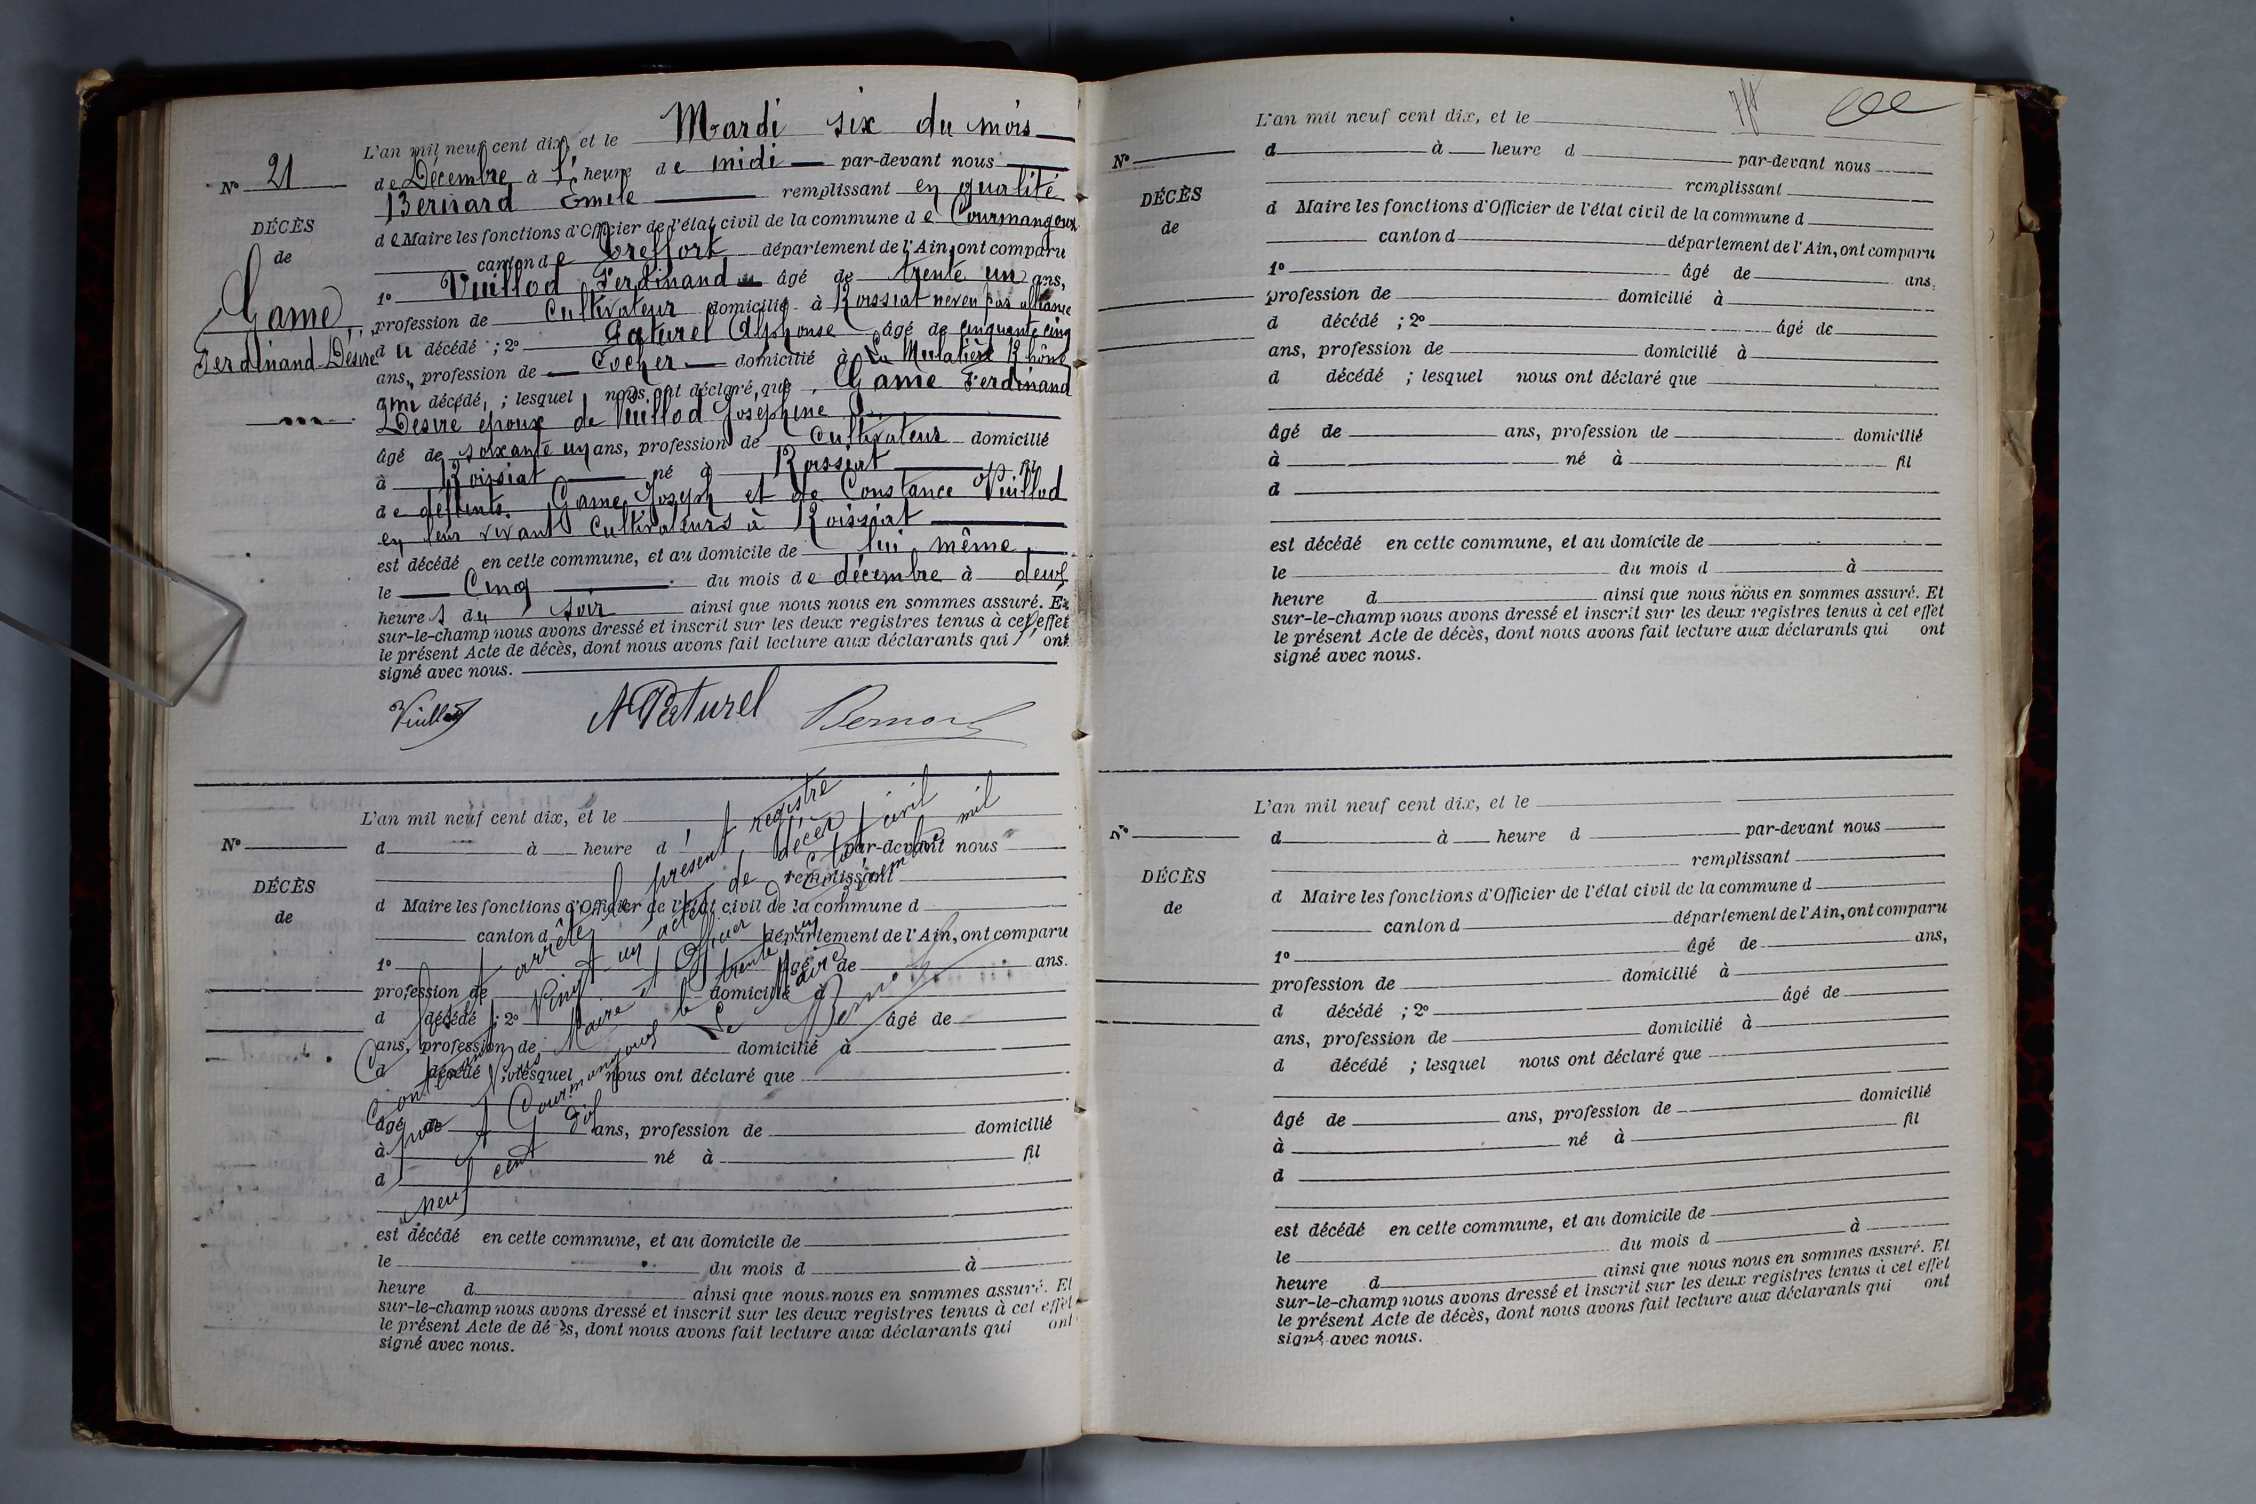 N° 21
DÉCÈS
de
Game
Ferdinand Désiré
L'an mil neuf cent dix, et le Mardi six du mois
de Décembre à l' heure de midi par-devant nous
Bernard Émile remplissant en qualité
de Maire les fonctions d'Officier de l'état civil de la commune de Courmangoux
canton de Treffort département de l'Ain, ont comparu
1° Vuillod Ferdinand âgé de trente un ans,
profession de Cultivateur domicilié à Roissiat neveu par alliance
du décédé ; 2° Paturel Alphonse âgé de cinquante cinq
ans, profession de Cocher domicilié à La Mulatière Rhône
ami décédé, ; lesquel nous ont déclaré, que Game Ferdinand
Désiré époux de Vuillod Joséphine
âgé de soixante un ans, profession de Cultivateur domicilié
à Roissiat né à Roissiat fil
de défunts Game Joseph et de Constance Vuillod
en leur vivant Cultivateurs à Roissiat
est décédé en cette commune, et au domicile de lui même
le Cinq du mois de décembre à deux
heures du soir ainsi que nous nous en sommes assuré. Et
sur-le-champ nous avons dressé et inscrit sur les deux registres tenus à cet effet
le présent Acte de décès, dont nous avons fait lecture aux déclarants qui l'ont
signé avec nous.
Vuillod A Paturel Bernard
N°
DÉCÈS
de
L'an mil neuf cent dix, et le
d à heure d par-devant nous
remplissant
d Maire les fonctions d'Officier de l'état civil de la commune d
canton d département de l'Ain, ont comparu
1° âgé de ans.
profession de domicilié à
d décédé ; 2° âgé de
ans, profession de domicilié à
d décédé ; lesquel nous ont déclaré que
âgé de ans, profession de domicilié
à né à fil
d
est décédé en cette commune, et au domicile de
le du mois d à
heure d ainsi que nous nous en sommes assuré. Et
sur-le-champ nous avons dressé et inscrit sur les deux registres tenus à cet effet
le présent Acte de décès, dont nous avons fait lecture aux déclarants qui ont
signé avec nous.
arrêté le présent registre
Contenant Vingt un actes de décès
par Nous Maire et Officier de l'état civil
à Courmangoux le trente un décembre mil
neuf cent dix
Le Maire
Bernard
N°
DÉCÈS
de
L'an mil neuf cent dix, et le
d à heure d par-devant nous
remplissant
d Maire les fonctions d'Officier de l'état civil de la commune d
canton d département de l'Ain, ont comparu
1° âgé de ans,
profession de domicilié à
d décédé ; 2° âgé de
ans, profession de domicilié à
d décédé ; lesquel nous ont déclaré que
âgé de ans, profession de domicilié
à né à fil
d
est décédé en cette commune, et au domicile de
le du mois d à
heure d ainsi que nous nous en sommes assuré. Et
sur-le-champ nous avons dressé et inscrit sur les deux registres tenus à cet effet
le présent Acte de décès, dont nous avons fait lecture aux déclarants qui ont
signé avec nous.
N°
DÉCÈS
de
L'an mil neuf cent dix, et le
d à heure d par-devant nous
remplissant
d Maire les fonctions d'Officier de l'état civil de la commune d
canton d département de l'Ain, ont comparu
1° âgé de ans,
profession de domicilié à
d décédé ; 2° âgé de
ans, profession de domicilié à
d décédé ; lesquel nous ont déclaré que
âgé de ans, profession de domicilié
à né à fil
d
est décédé en cette commune, et au domicile de
le du mois d à
heure d ainsi que nous nous en sommes assuré. Et
sur-le-champ nous avons dressé et inscrit sur les deux registres tenus à cet effet
le présent Acte de décès, dont nous avons fait lecture aux déclarants qui ont
signé avec nous.